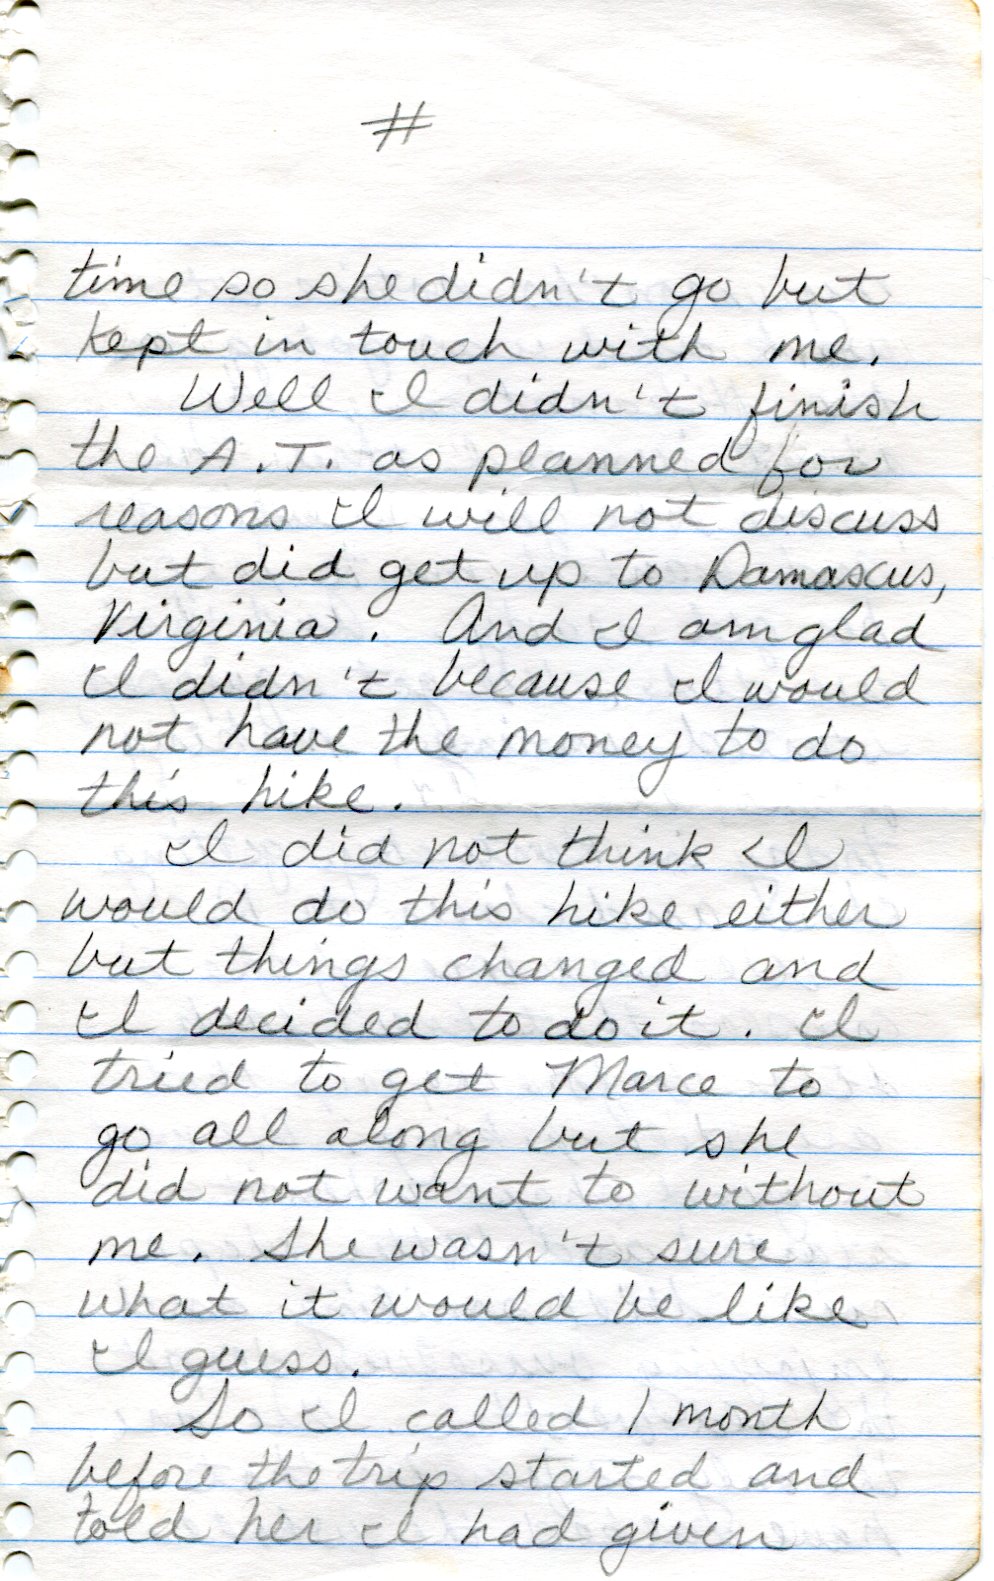 #
time so she didn't go but
kept in touch with me.
Well I didn't finish
the A.T. as planned for
reasons I will not discuss
but did get up to Damascus,
Virginia. And I am glad
I didn't because I would
not have the money to do
this hike.
I did not think I
would do this hike either
but things changed and
I decided to do it. I
tried to get Marce to
go all along but she
did not want to without
me. She wasn't sure
what it would be like
I guess.
So I called 1 month
before the trip started and
told her I had given